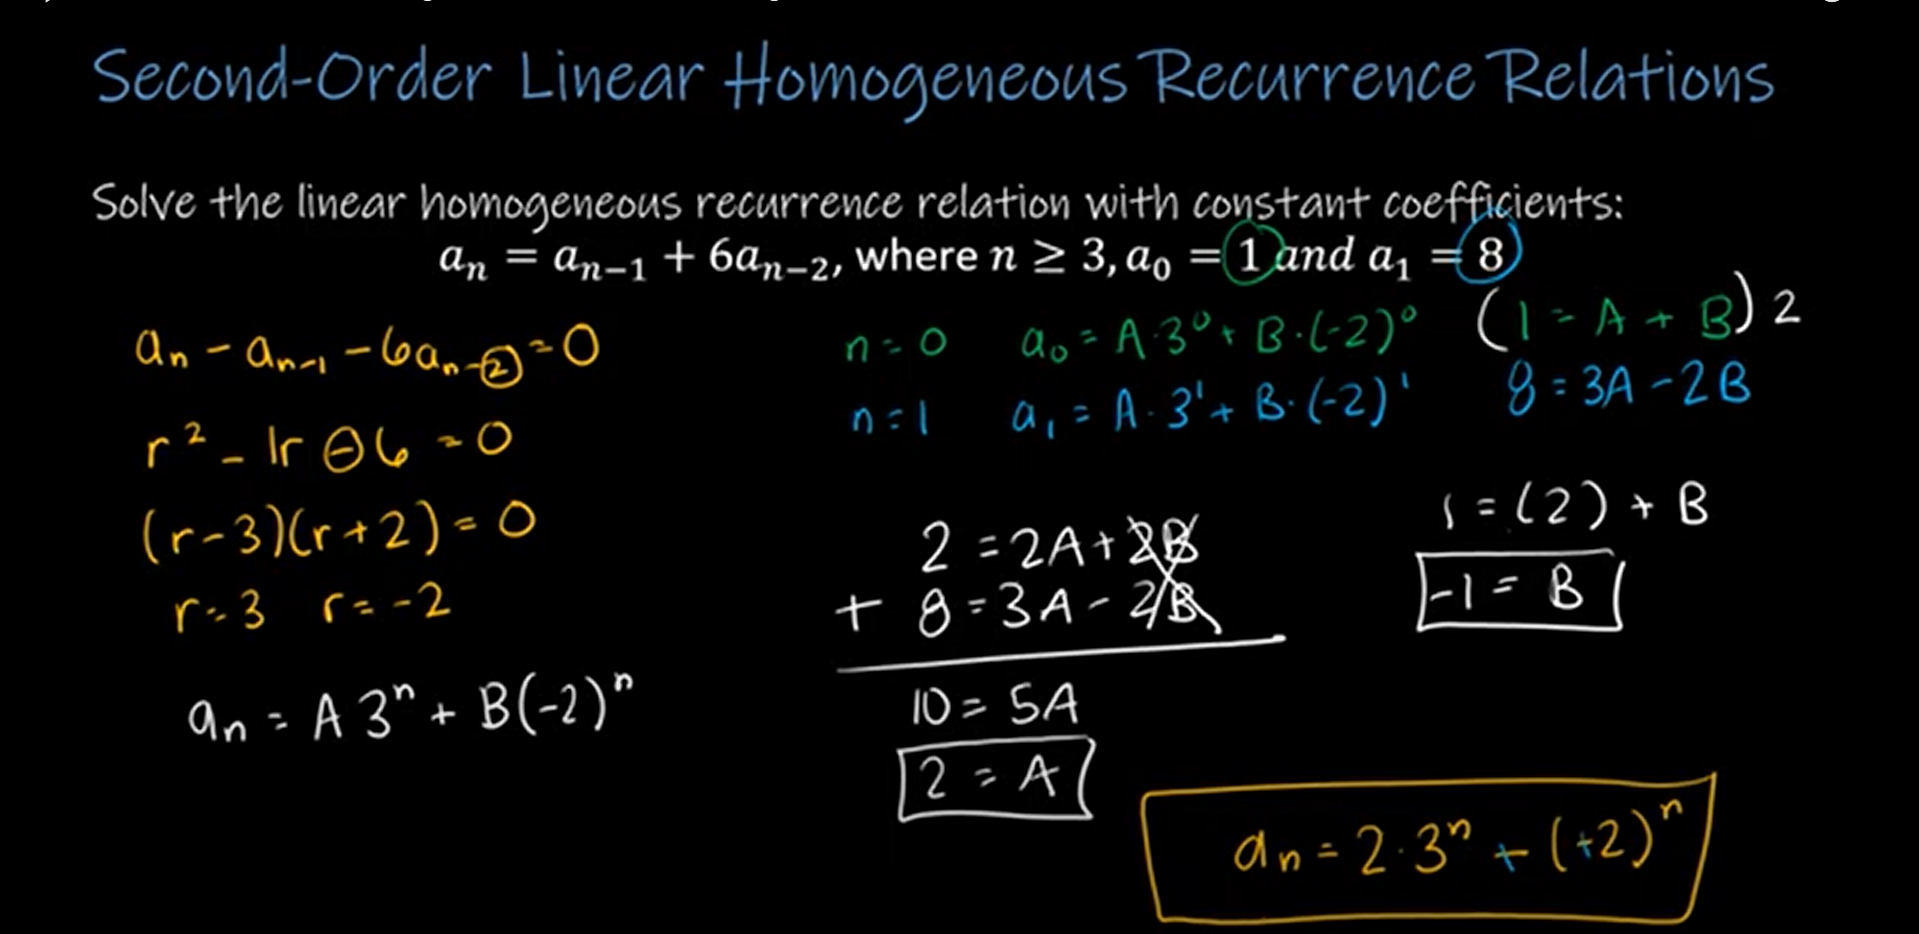 Second-Order Linear Homogeneous Recurrence Relations
Solve the linear homogeneous recurrence relation with constant coefficients:
aₙ = aₙ₋₁ + 6aₙ₋₂, where n ≥ 3, a₀ = 1 and a₁ = 8
aₙ - aₙ₋₁ - 6aₙ₋₂ = 0
r² - 1r - 6 = 0
(r - 3)(r + 2) = 0
r = 3 r = -2
aₙ = A 3ⁿ + B(-2)ⁿ
n = 0 a₀ = A·3⁰ + B·(-2)⁰ (1 = A + B) 2
n = 1 a₁ = A·3¹ + B·(-2)¹ 8 = 3A - 2B
2 = 2A + 2B
+ 8 = 3A - 2B
10 = 5A
2 = A
1 = (2) + B
-1 = B
aₙ = 2·3ⁿ + (+2)ⁿ